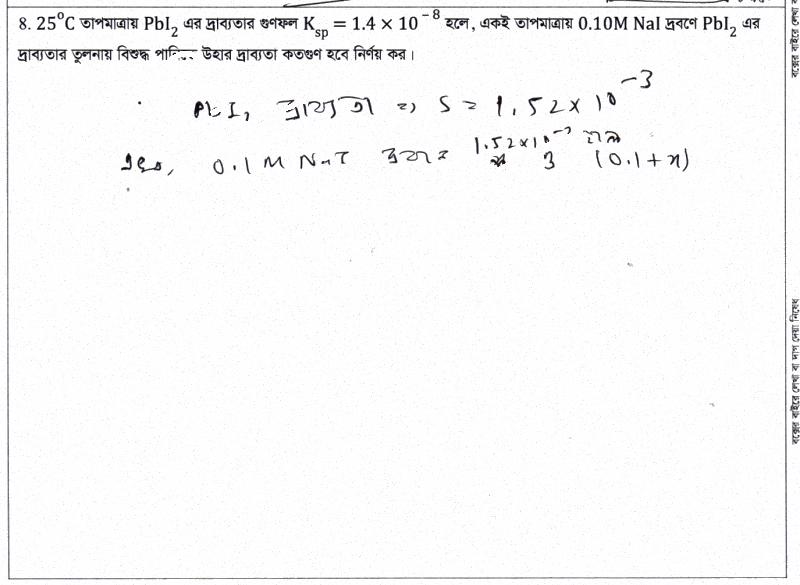 8. 25°C তাপমাত্রায় PbI₂ এর দ্রাব্যতার গুণফল Kₛₚ = 1.4 × 10⁻⁸ হলে, একই তাপমাত্রায় 0.10M NaI দ্রবণে PbI₂ এর
দ্রাব্যতার তুলনায় বিশুদ্ধ উহার দ্রাব্যতা কতগুণ হবে নির্ণয় কর।
PbI₂ দ্রাব্যতা ⇒ S = 1.52 × 10⁻³
1.52×10⁻³
0.1 M NaI (0.1 + x)
বক্সের বাইরে লেখা বা দাগ দেয়া নিষেধ